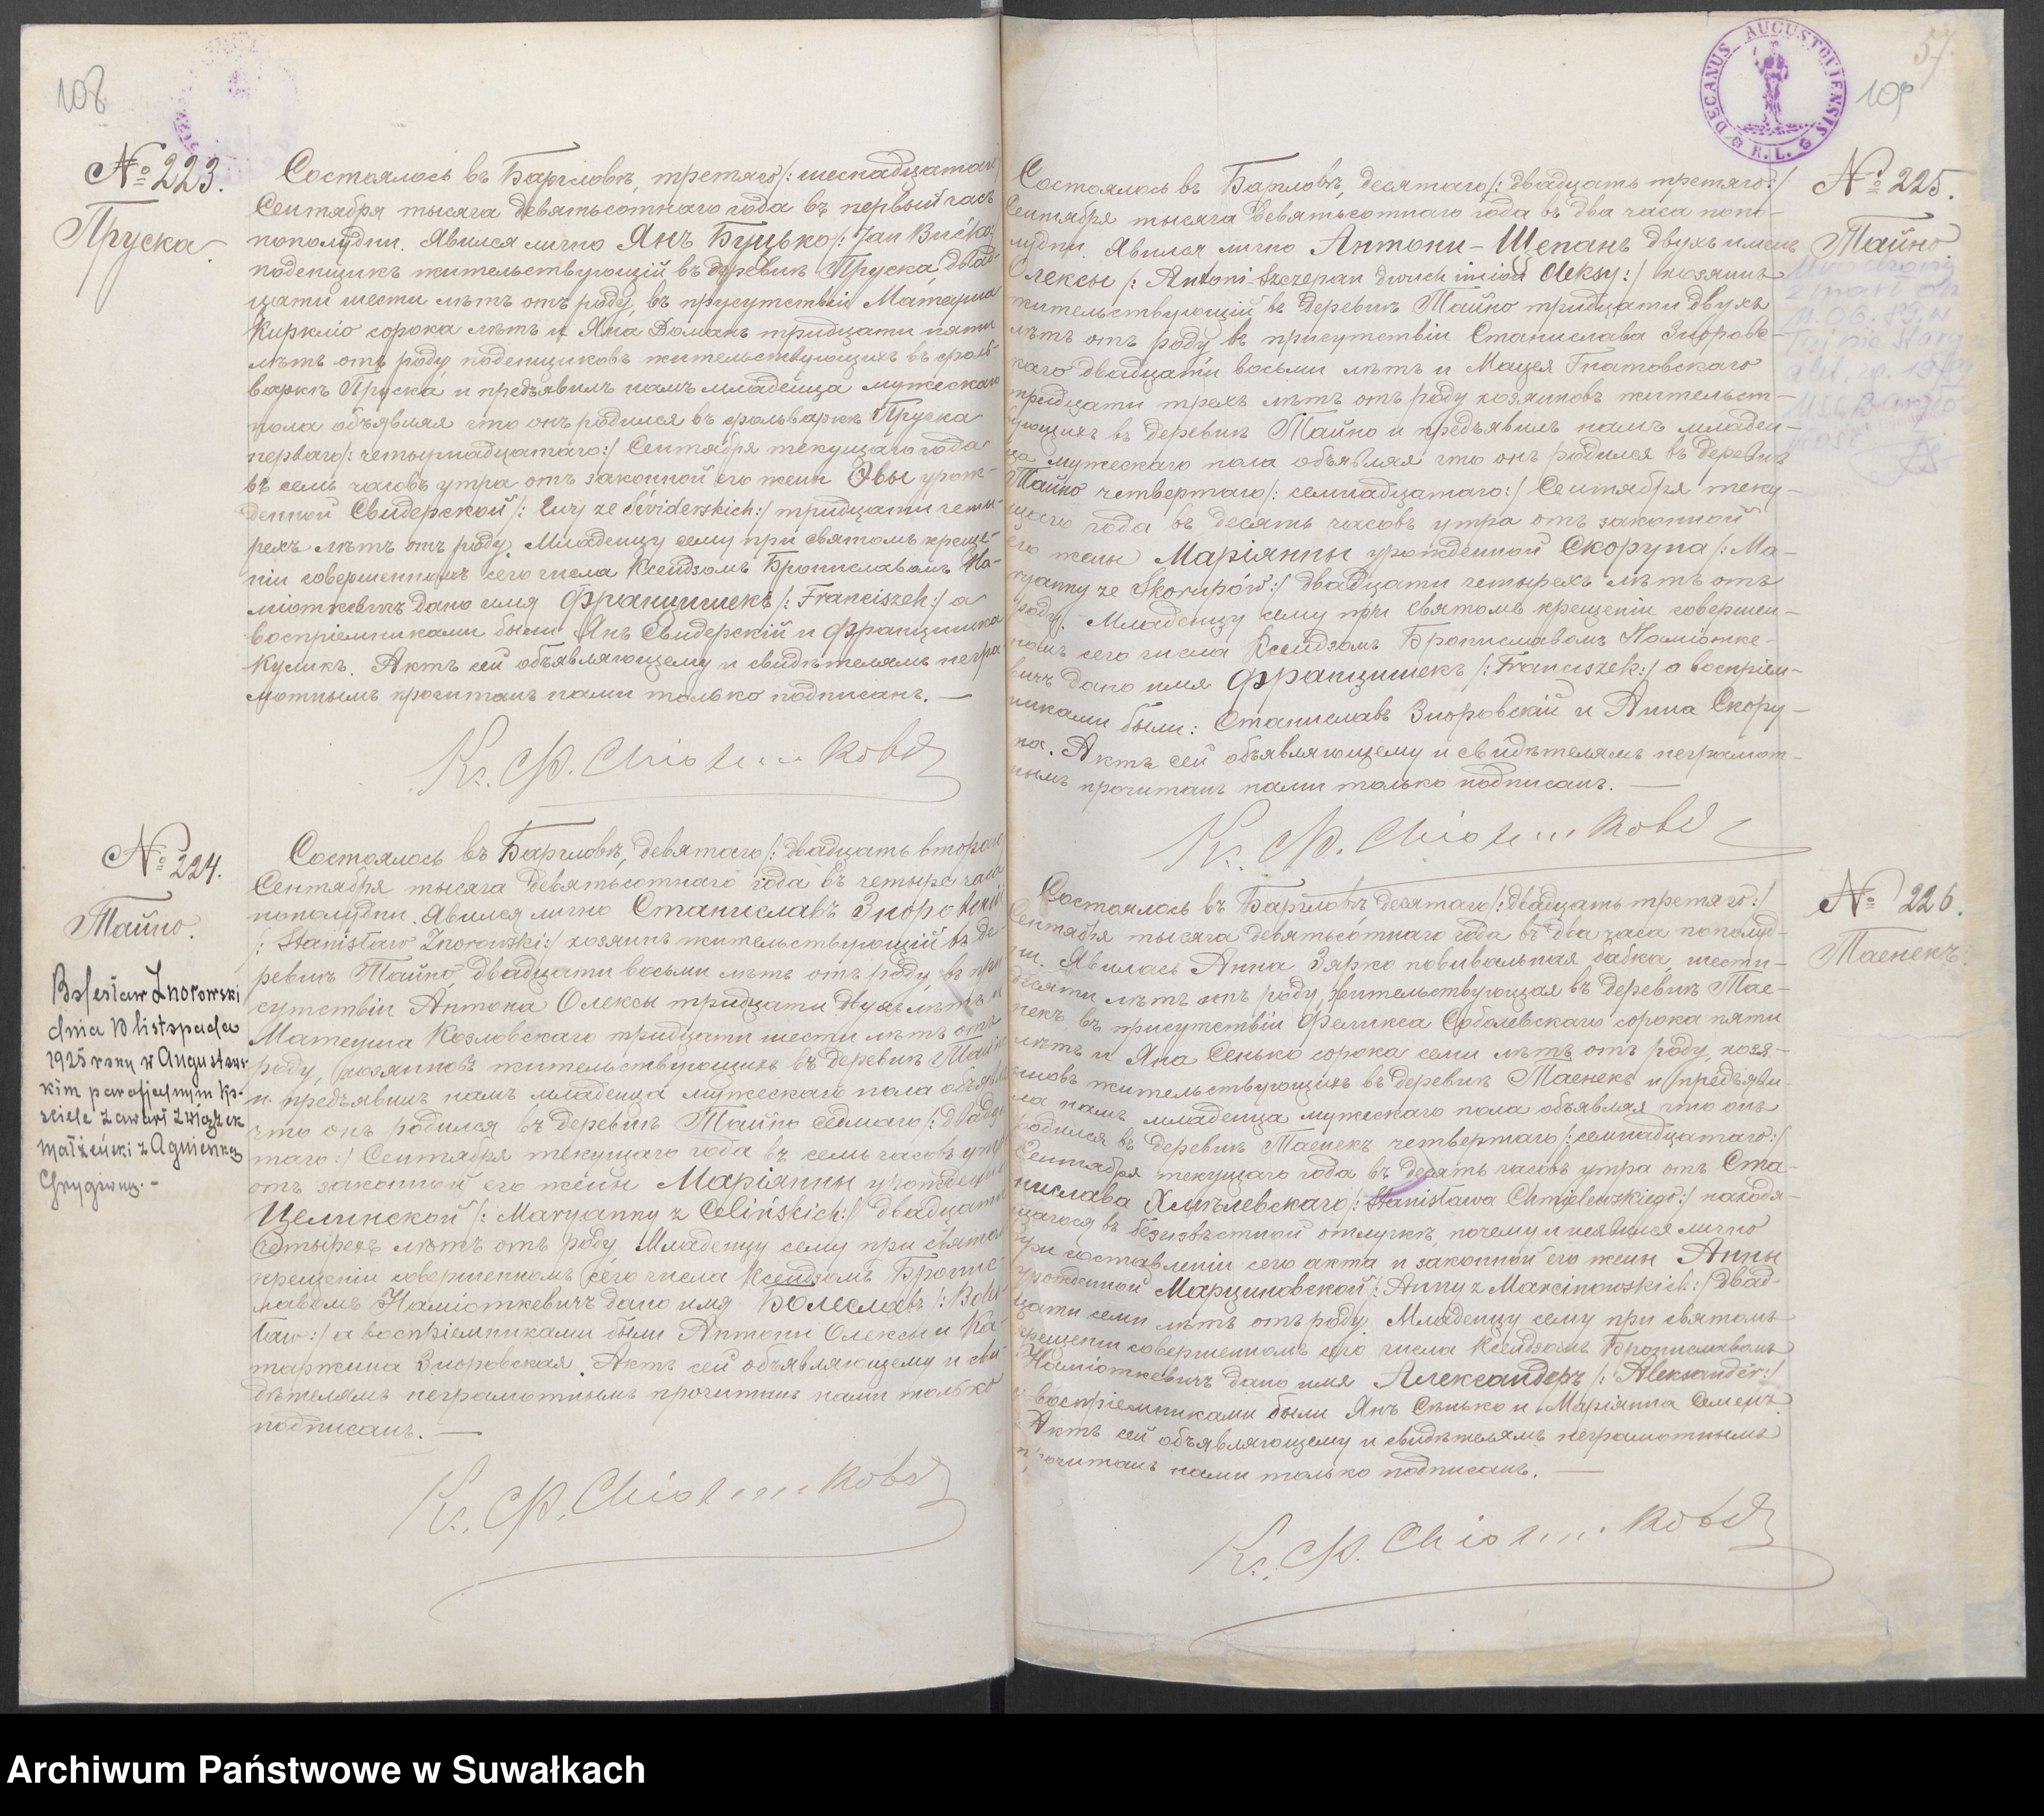 108
№ 223.
Пруска.
Состоялось въ Баргловѣ, третяго /: шеснадцатаго
Сентября тысяча девятьсотнаго года въ первый часъ
пополудни. Явился лично Янъ Буцько /: Jan Bućko:
поденщикъ жительствующій въ деревнѣ Пруска, двад-
цати шести лѣтъ отъ роду, въ присутствіи Матеуша
Киркліо сорока лѣтъ и Яна Доманъ тридцати пяти
лѣтъ отъ роду, поденщиковъ жительствующихъ въ фоль-
варкѣ Пруска и предъявилъ намъ младенца мужескаго
пола объявляя что онъ родился въ фольваркѣ Пруска
перваго /: четырнадцатаго:/ Сентября текущаго года
въ семь часовъ утра отъ законной его жены Эвы урож-
денной Свидерской /: Ewy ze Świderskich:/ тридцати четы-
рехъ лѣтъ отъ роду. Младенцу сему при святомъ креще-
ніи совершенномъ сего числа Ксендзомъ Брониславомъ На-
міоткевичъ дано имя Францишекъ /: Franciszek:/ а
воспріемниками были Янъ Свидерскій и Францишка
Куликъ. Актъ сей объявляющему и свидѣтелямъ негра
мотнымъ прочитанъ нами только подписанъ. —
№ 224.
Тайно.
Состоялось въ Баргловѣ, девятаго /: двадцать втораго
Сентября тысяча девятьсотнаго года въ четыре часа
пополудни. Явился лично Станиславъ Зноровскій
/: Stanisław Znorowski:/ хозяинъ жительствующій въ де-
ревнѣ Тайно, двадцати восьми лѣтъ отъ роду, въ при
сутствіи Антона Олексы тридцати двухъ лѣтъ и
Матеуша Козловскаго тридцати шести лѣтъ отъ
роду, хозяиновъ жительствующихъ въ деревнѣ Тайно
и предъявилъ намъ младенца мужескаго пола объявляя
что онъ родился въ деревнѣ Тайно седмаго /: двадца
таго:/ Сентября текущаго года въ семь часовъ утра
отъ законной его жены Маріянны урожденной
Целинской /: Maryanny z Celińskich:/ двадцати
четырехъ лѣтъ отъ роду. Младенцу сему при святомъ
крещеніи совершенномъ сего числа Ксендзомъ Брони-
славомъ Наміоткевичъ дано имя Болеславъ /: Bole-
sław:/ а воспріемниками были Антони Олексы и Ка-
таржина Зноровская. Актъ сей объявляющему и сви-
дѣтелямъ неграмотнымъ прочитанъ нами только
подписанъ. —
Bolesław Znorowski
dnia 13 listopada
1925 roku w Augustows-
kim parafjalnym ko-
ściele zawarł związek
małżeński z Agnieszką
57
109
DECANUS AUGUSTOVIENSIS R. L.
№ 225.
Тайно.
Состоялось въ Баргловѣ, десятаго /: двадцать третяго:/
Сентября тысяча девятьсотнаго года въ два часа попо-
лудни. Явился лично Антони-Щепанъ двухъ именъ
Олексы /: Antoni-Szczepan dwóch imion Oleksy:/ хозяинъ
жительствующій въ деревнѣ Тайно тридцати двухъ
лѣтъ отъ роду въ присутствіи Станислава Зноровс-
каго двадцати восьми лѣтъ и Мацея Гнатовскаго
тридцати трехъ лѣтъ отъ роду хозяиновъ жительст-
вующихъ въ деревнѣ Тайно и предъявилъ намъ младен-
ца мужескаго пола объявляя что онъ родился въ деревнѣ
Тайно четвертаго /: семнадцатаго:/ Сентября теку-
щаго года въ десять часовъ утра отъ законной
его жены Маріянны урожденной Скорупа /: Ma-
ryanny ze Skorupów:/ двадцати четырехъ лѣтъ отъ
роду. Младенцу сему при святомъ крещеніи совершен-
номъ сего числа Ксендзомъ Брониславомъ Наміотке-
вичъ дано имя Францишекъ /: Franciszek:/ а воспріем-
никами были: Станиславъ Зноровскій и Анна Скору-
па. Актъ сей объявляющему и свидѣтелямъ неграмот-
нымъ прочитанъ нами только подписанъ. —
№ 226.
Таенекъ.
Состоялось въ Баргловѣ десятаго /: двадцать третяго:/
Сентября тысяча девятьсотнаго года въ два часа пополуд-
ни. Явилась Анна Зярко повивальная бабка, шести-
десяти лѣтъ отъ роду, жительствующая въ деревнѣ Тае-
некъ въ присутствіи Феликса Соболевскаго сорока пяти
лѣтъ и Яна Сенько сорока семи лѣтъ отъ роду, хозя-
иновъ жительствующихъ въ деревнѣ Таенекъ и предъяви-
ла намъ младенца мужескаго пола объявляя что онъ
родился въ деревнѣ Таенекъ четвертаго /: семнадцатаго:/
Сентября текущаго года въ десять часовъ утра отъ Ста-
нислава Хмѣлевскаго /: Stanisława Chmielewskiego:/ находя-
щагося въ безизвѣстной отлучкѣ, почему и неявился лично
при составленіи сего акта и законной его жены Анны
урожденной Марциновской /: Anny z Marcinowskich:/ двад-
цати семи лѣтъ отъ роду. Младенцу сему при святомъ
крещеніи совершенномъ сего числа Ксендзомъ Брониславомъ
Наміоткевичъ дано имя Александеръ /: Aleksander:/
а воспріемниками были Янъ Сѣнько и Маріянна Семенъ.
Актъ сей объявляющему и свидѣтелямъ неграмотнымъ
прочитанъ нами только подписанъ. —
Archiwum Państwowe w Suwałkach